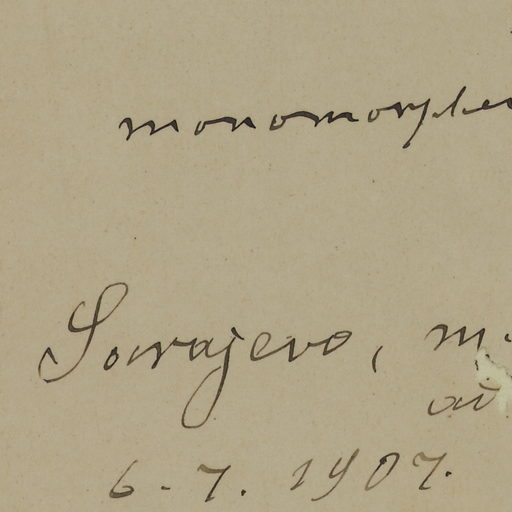 monomorpha
Sarajevo, m.
6-7. 1907.